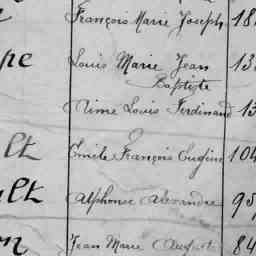 François Marie Joseph 18
pe Louis Marie Jean 13
Baptiste
Aimé Louis Ferdinand 13
lt Emile François Eugène 104
ult Alphonse Alexandre 95
on Jean Marie Auguste 84